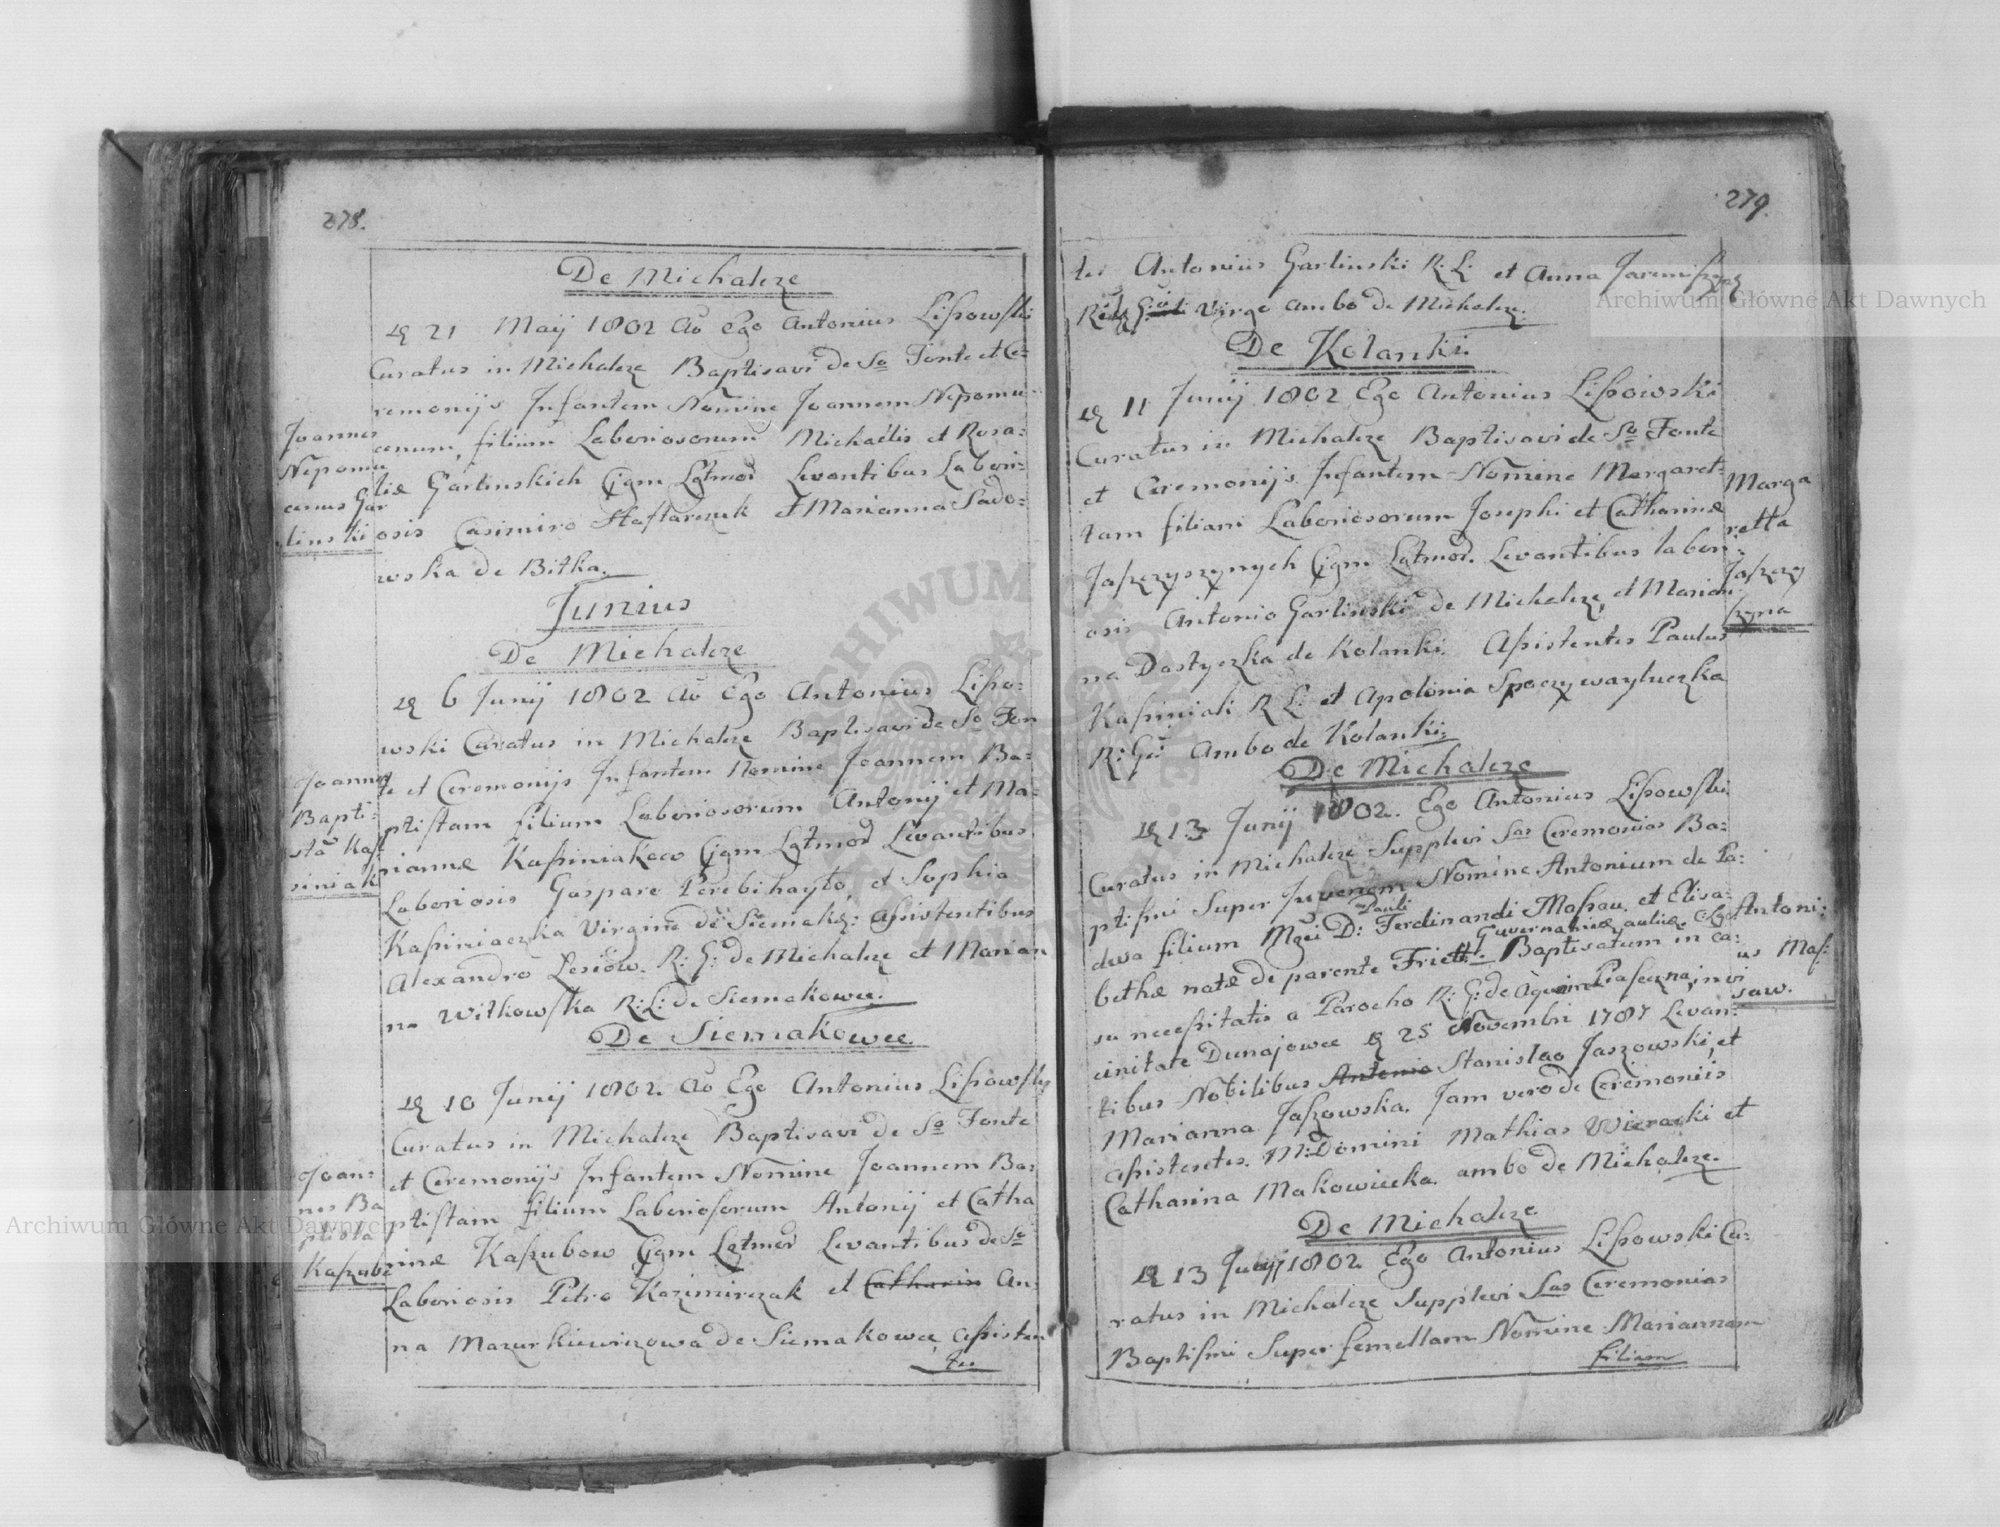 278.
De Michalcze
21 Maij 1802 Aõ Ego Antonius Lissowski
Curatus in Michalcze Baptisavi de So Fonte et Ce-
remonijs Infantem Nomine Joannem Nepomu-
cenum, filium Laboriosorum Michaëlis et Rosa-
liæ Garlinskich Cjgm Lgtmor Levantibus Labori-
osis Casimiro et Marianna Sado-
wska de Bitka.
Joannes
Nepomu
cenus Gar
linski
Junius
De Michalcze
6 Junij 1802 Aõ Ego Antonius Lisso-
wski Curatus in Michalcze Baptisavi de So Fon
te et Ceremonijs Infantem Nomine Joannem Ba-
ptistam filium Laboriosorum Antonij et Ma-
riannæ Kassiniakow Cjgm Lgtmor Levantibus
Laboriosis Gaspare Perebihayło, et Sophia
Kassiniaczka Virgine de Siemakcz: Assistentibus
Alexandro Lesiow. R: G: de Michalcze et Marian
na Witkowska R: L: de Siemakowce.
Joannes
Bapti-
sta Kas
siniak
De Siemakowce
10 Junij 1802. Aõ Ego Antonius Lissowsky
Curatus in Michalcze Baptisavi de So Fonte
et Ceremonijs Infantem Nomine Joannem Ba-
ptistam filium Laboriosorum Antonij et Catha
rinæ Kaszubow Cjgm Lgtmor Levantibus de So
Laboriosis Petro Kazimirczak et Catharin An-
na Mazurkiewiczowa de Siemakowce, Assisten
tes
Joan-
nes Ba
ptista
Kaszube
279.
tes Antonius Garlinski R: L: et Anna
Virgo ambo de Michalcze.
De Kolanki.
11 Junij 1802 Ego Antonius Lissowski
Curatus in Michalcze Baptisavi de So Fonte
et Ceremonijs Infantem Nomine Margaret-
tam filiam Laboriosorum Josephi et Catharinæ
Jaszczyszynych Cjgm Lgtmor. Levantibus labori-
osis Antonio Garlinski de Michalcze, et Marian-
na Dostyczka de Kolanki. Assistentes Paulus
Kassiniak R L: et Apolonia Spoczywayłuczka
R: G: Ambo de Kolanki.
Marga
retta
Jaszczy
szyna
De Michalcze
13 Junij 1802. Ego Antonius Lissowski
Curatus in Michalcze Supplevi Sas Ceremonias Ba-
ptismi Super Juvenem Nomine Antonium de Pa-
dva filium Mgci D: Pauli Ferdinandi Massau. et Elisa-
bethæ natæ de parente Friett. Baptisatum in ca-
su necessitatis a Parocho R: G: de Piaseczna, in vi
cinitate Dunajowce 25 Novembri 1787 Levan-
tibus Nobilibus Antonio Stanislao Jaszowski, et
Marianna Jaszowska. Jam vero de Ceremoniis
Assistentes. M: Domini Mathias Wieracki et
Catharina Makowiecka ambo de Michalcze.
Antoni-
us Mas-
saw.
De Michalcze
13 Junij 1802. Ego Antonius Lissowski Cu-
ratus in Michalcze Supplevi Sas Ceremonias
Baptismi Super femellam Nomine Mariannam
filiam
Archiwum Główne Akt Dawnych
Archiwum Główne Akt Dawnych